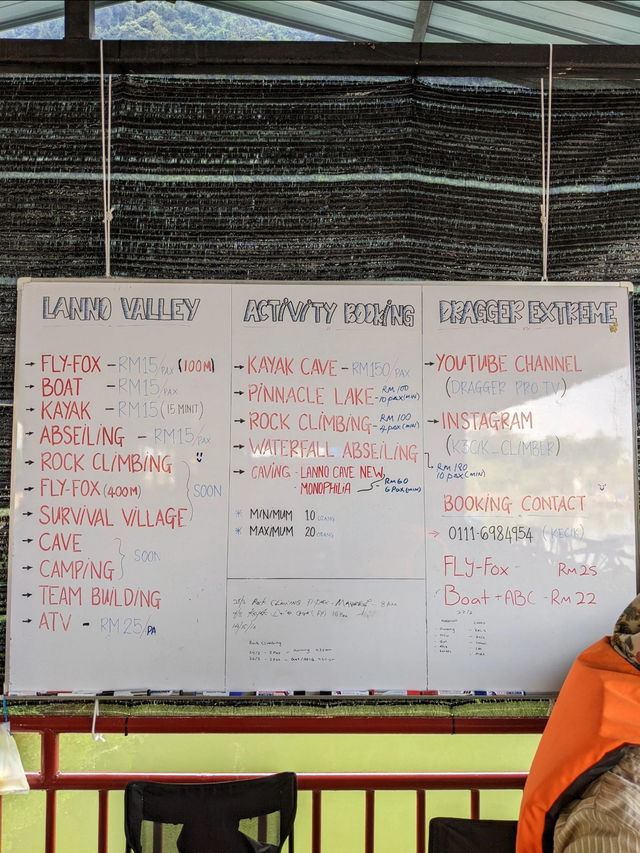 LANNO VALLEY
→ FLY-FOX - RM15/PAX (100M)
→ BOAT - RM15/PAX
→ KAYAK - RM15 (15 MINIT)
→ ABSEILING - RM15/PAX
→ ROCK CLIMBING
→ FLY-FOX (400M) SOON
→ SURVIVAL VILLAGE
→ CAVE
→ CAMPING SOON
→ TEAM BUILDING
→ ATV - RM25/PA
ACTIVITY BOOKING
→ KAYAK CAVE - RM150/PAX
→ PINNACLE LAKE - RM 100 10 pax (min)
→ ROCK CLIMBING - RM 100 4 pax (min)
→ WATERFALL ABSEILING
RM 180
10 pax (min)
→ CAVING - LANNO CAVE NEW,
• MONOPHILIA RM60 6 Pax (min)
* MINIMUM 10 ORANG
* MAXIMUM 20 ORANG
Rock Climbing
DRAGGER EXTREME
→ YOUTUBE CHANNEL
(DRAGGER PRO TV)
→ INSTAGRAM
(K3CIK_CLIMBER)
BOOKING CONTACT
→ 0111-6984954 (KECIK)
FLY-Fox - RM 25
Boat + ABC - RM 22